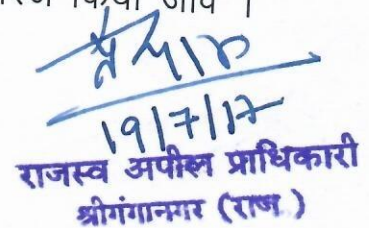 किया जावे ।
19/7/17
राजस्व अपील प्राधिकारी
श्रीगंगानगर (राज )